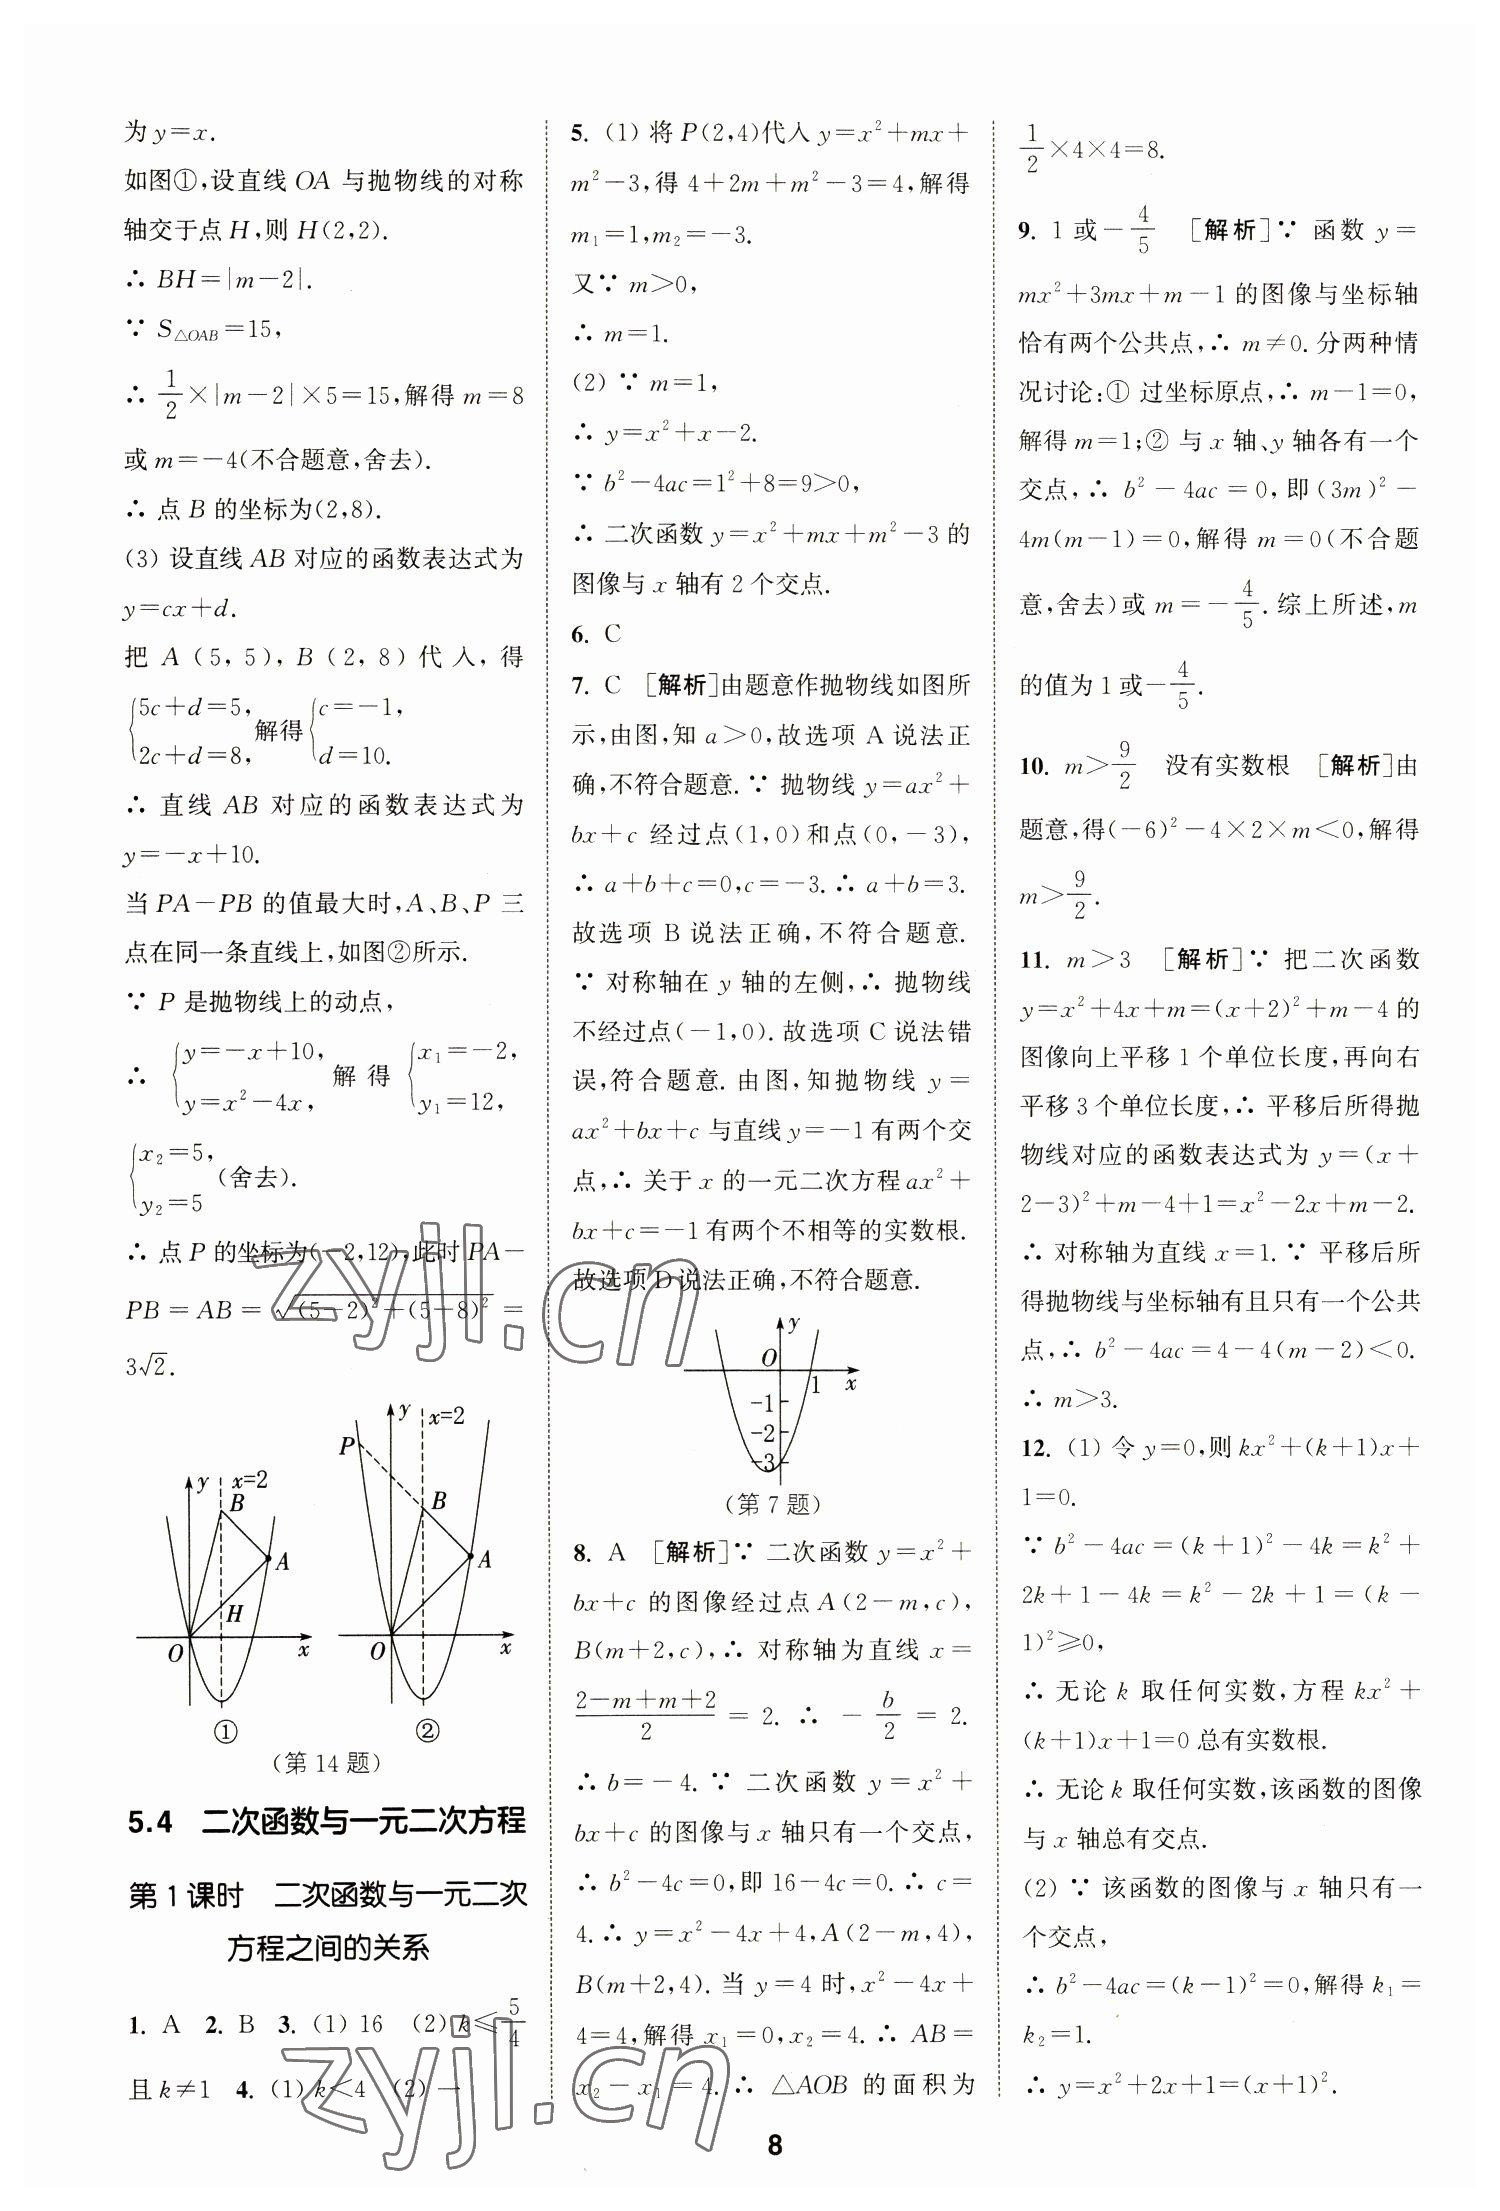 为 y=x.
如图①,设直线 OA 与抛物线的对称
轴交于点 H,则 H(2,2).
∴ BH=|m-2|.
∵ S△OAB=15,
∴ 1/2×|m-2|×5=15,解得 m=8
或 m=-4(不合题意,舍去).
∴ 点 B 的坐标为(2,8).
(3) 设直线 AB 对应的函数表达式为
y=cx+d.
把 A(5,5), B(2,8)代入,得
{5c+d=5, 2c+d=8, 解得 {c=-1, d=10.
∴ 直线 AB 对应的函数表达式为
y=-x+10.
当 PA-PB 的值最大时,A、B、P 三
点在同一条直线上,如图②所示.
∵ P 是抛物线上的动点,
∴ {y=-x+10, y=x²-4x, 解得 {x₁=-2, y₁=12,
{x₂=5, y₂=5 (舍去).
∴ 点 P 的坐标为(-2,12),此时 PA-
PB=AB=√((5-2)²+(5-8)²)=
3√2.
y x=2 B A H O x ①
y x=2 P B A O x ②
(第 14 题)
5.4 二次函数与一元二次方程
第 1 课时 二次函数与一元二次
方程之间的关系
1. A 2. B 3. (1) 16 (2) k≤5/4
且 k≠1 4. (1) k<4 (2) 一
5. (1) 将 P(2,4)代入 y=x²+mx+
m²-3,得 4+2m+m²-3=4,解得
m₁=1,m₂=-3.
又∵ m>0,
∴ m=1.
(2) ∵ m=1,
∴ y=x²+x-2.
∵ b²-4ac=1²+8=9>0,
∴ 二次函数 y=x²+mx+m²-3 的
图像与 x 轴有 2 个交点.
6. C
7. C [解析]由题意作抛物线如图所
示,由图,知 a>0,故选项 A 说法正
确,不符合题意.∵ 抛物线 y=ax²+
bx+c 经过点(1,0)和点(0,-3),
∴ a+b+c=0,c=-3.∴ a+b=3.
故选项 B 说法正确,不符合题意.
∵ 对称轴在 y 轴的左侧,∴ 抛物线
不经过点(-1,0).故选项 C 说法错
误,符合题意.由图,知抛物线 y=
ax²+bx+c 与直线 y=-1 有两个交
点,∴ 关于 x 的一元二次方程 ax²+
bx+c=-1 有两个不相等的实数根.
故选项 D 说法正确,不符合题意.
y O 1 x -1 -2 -3
(第 7 题)
8. A [解析]∵ 二次函数 y=x²+
bx+c 的图像经过点 A(2-m,c),
B(m+2,c),∴ 对称轴为直线 x=
(2-m+m+2)/2=2. ∴ -b/2=2.
∴ b=-4.∵ 二次函数 y=x²+
bx+c 的图像与 x 轴只有一个交点,
∴ b²-4c=0,即 16-4c=0.∴ c=
4.∴ y=x²-4x+4,A(2-m,4),
B(m+2,4).当 y=4 时,x²-4x+
4=4,解得 x₁=0,x₂=4.∴ AB=
x₂-x₁=4.∴ △AOB 的面积为
1/2×4×4=8.
9. 1 或-4/5 [解析]∵ 函数 y=
mx²+3mx+m-1 的图像与坐标轴
恰有两个公共点,∴ m≠0.分两种情
况讨论:① 过坐标原点,∴ m-1=0,
解得 m=1;② 与 x 轴、y 轴各有一个
交点,∴ b²-4ac=0,即(3m)²-
4m(m-1)=0,解得 m=0(不合题
意,舍去)或 m=-4/5.综上所述,m
的值为 1 或-4/5.
10. m>9/2 没有实数根 [解析]由
题意,得(-6)²-4×2×m<0,解得
m>9/2.
11. m>3 [解析]∵ 把二次函数
y=x²+4x+m=(x+2)²+m-4 的
图像向上平移 1 个单位长度,再向右
平移 3 个单位长度,∴ 平移后所得抛
物线对应的函数表达式为 y=(x+
2-3)²+m-4+1=x²-2x+m-2.
∴ 对称轴为直线 x=1.∵ 平移后所
得抛物线与坐标轴有且只有一个公共
点,∴ b²-4ac=4-4(m-2)<0.
∴ m>3.
12. (1) 令 y=0,则 kx²+(k+1)x+
1=0.
∵ b²-4ac=(k+1)²-4k=k²+
2k+1-4k=k²-2k+1=(k-
1)²≥0,
∴ 无论 k 取任何实数,方程 kx²+
(k+1)x+1=0 总有实数根.
∴ 无论 k 取任何实数,该函数的图像
与 x 轴总有交点.
(2) ∵ 该函数的图像与 x 轴只有一
个交点,
∴ b²-4ac=(k-1)²=0,解得 k₁=
k₂=1.
∴ y=x²+2x+1=(x+1)².
8
zyjl.cn
zyjl.cn